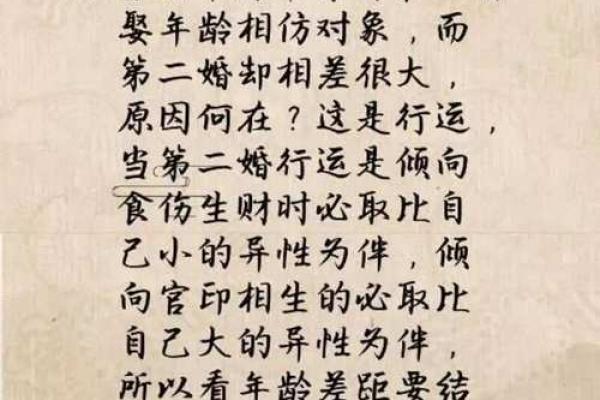 娶年龄相仿对象，而
第二婚却相差很大，
原因何在？这是行运，
当第二婚行运是倾向
食伤生财时必取比自
己小的异性为伴，倾
向官印相生的必取比
自己大的异性为伴，
所以看年龄差距要结